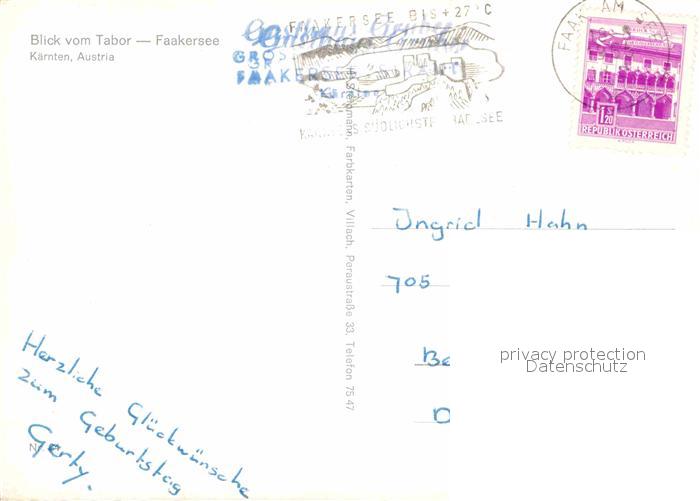 Blick vom Tabor — Faakersee
Kärnten, Austria
FAAKERSEE BIS + 27° C
GROS
FAAKERSEE
FAAK AM
REPUBLIK ÖSTERREICH
Farbkarten, Villach, Peraustraße 33, Telefon 75 47
Ingrid Hahn
705
Be
D
privacy protection
Datenschutz
Herzliche Glückwünsche
zum Geburtstag
Gerty.